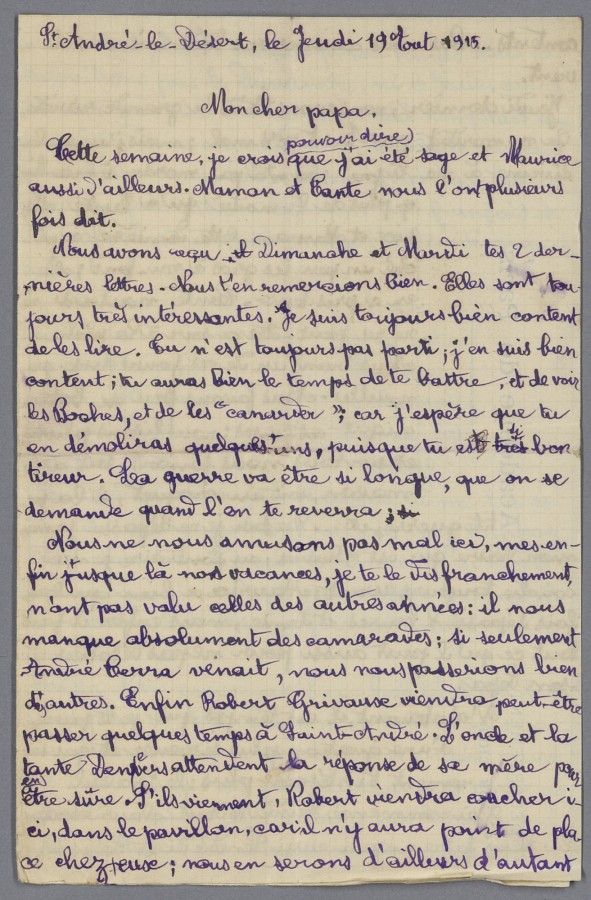 St. André-le-Désert, le Jeudi 19 Aout 1915.
Mon cher papa,
pouvoir dire
Cette semaine, je crois que j'ai été sage et Maurice
aussi d'ailleurs. Maman et Tante nous l'ont plusieurs
fois dit.
Nous avons reçu Dimanche et Mardi tes 2 der-
nières lettres. Nous t'en remercions bien. Elles sont tou-
jours très intéressantes. Je suis toujours bien content
de les lire. Tu n'est toujours pas parti; j'en suis bien
content; tu auras bien le temps de te battre, et de voir
les Boches, et de les "canarder"; car j'espère que tu
en démoliras quelques-uns, puisque tu es si
bon
tireur. La guerre va être si longue, que on se
demande quand l'on te reverra;
Nous ne nous amusons pas mal ici, mes en-
fin jusque là nos vacances, je te le dis franchement,
n'ont pas valu celles des autres années: il nous
manque absolument des camarades; si seulement
André Terra venait, nous nous passerions bien
d'autres. Enfin Robert Grivause viendra peut-être
passer quelques temps à Saint-André. L'oncle et la
tante attendent la réponse de sa mère pour
en
être sûre. S'ils viennent, Robert viendra coucher i-
ci, dans le pavillon, car il n'y aura point de pla-
ce chez eux; nous en serons d'ailleurs d'autant